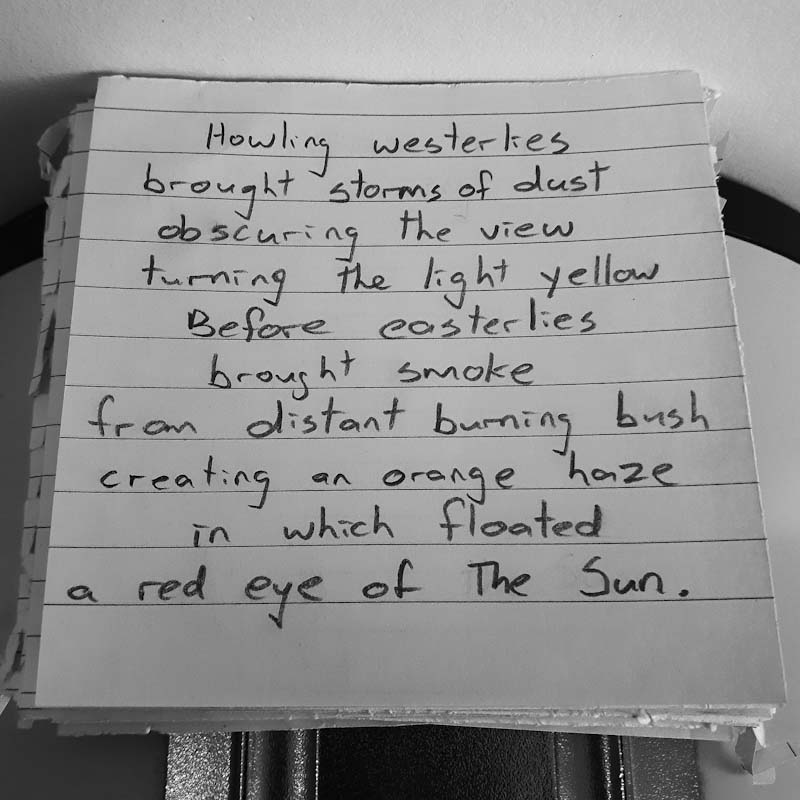 Howling westerlies
brought storms of dust
obscuring the view
turning the light yellow
Before easterlies
brought smoke
from distant burning bush
creating an orange haze
in which floated
a red eye of The Sun.